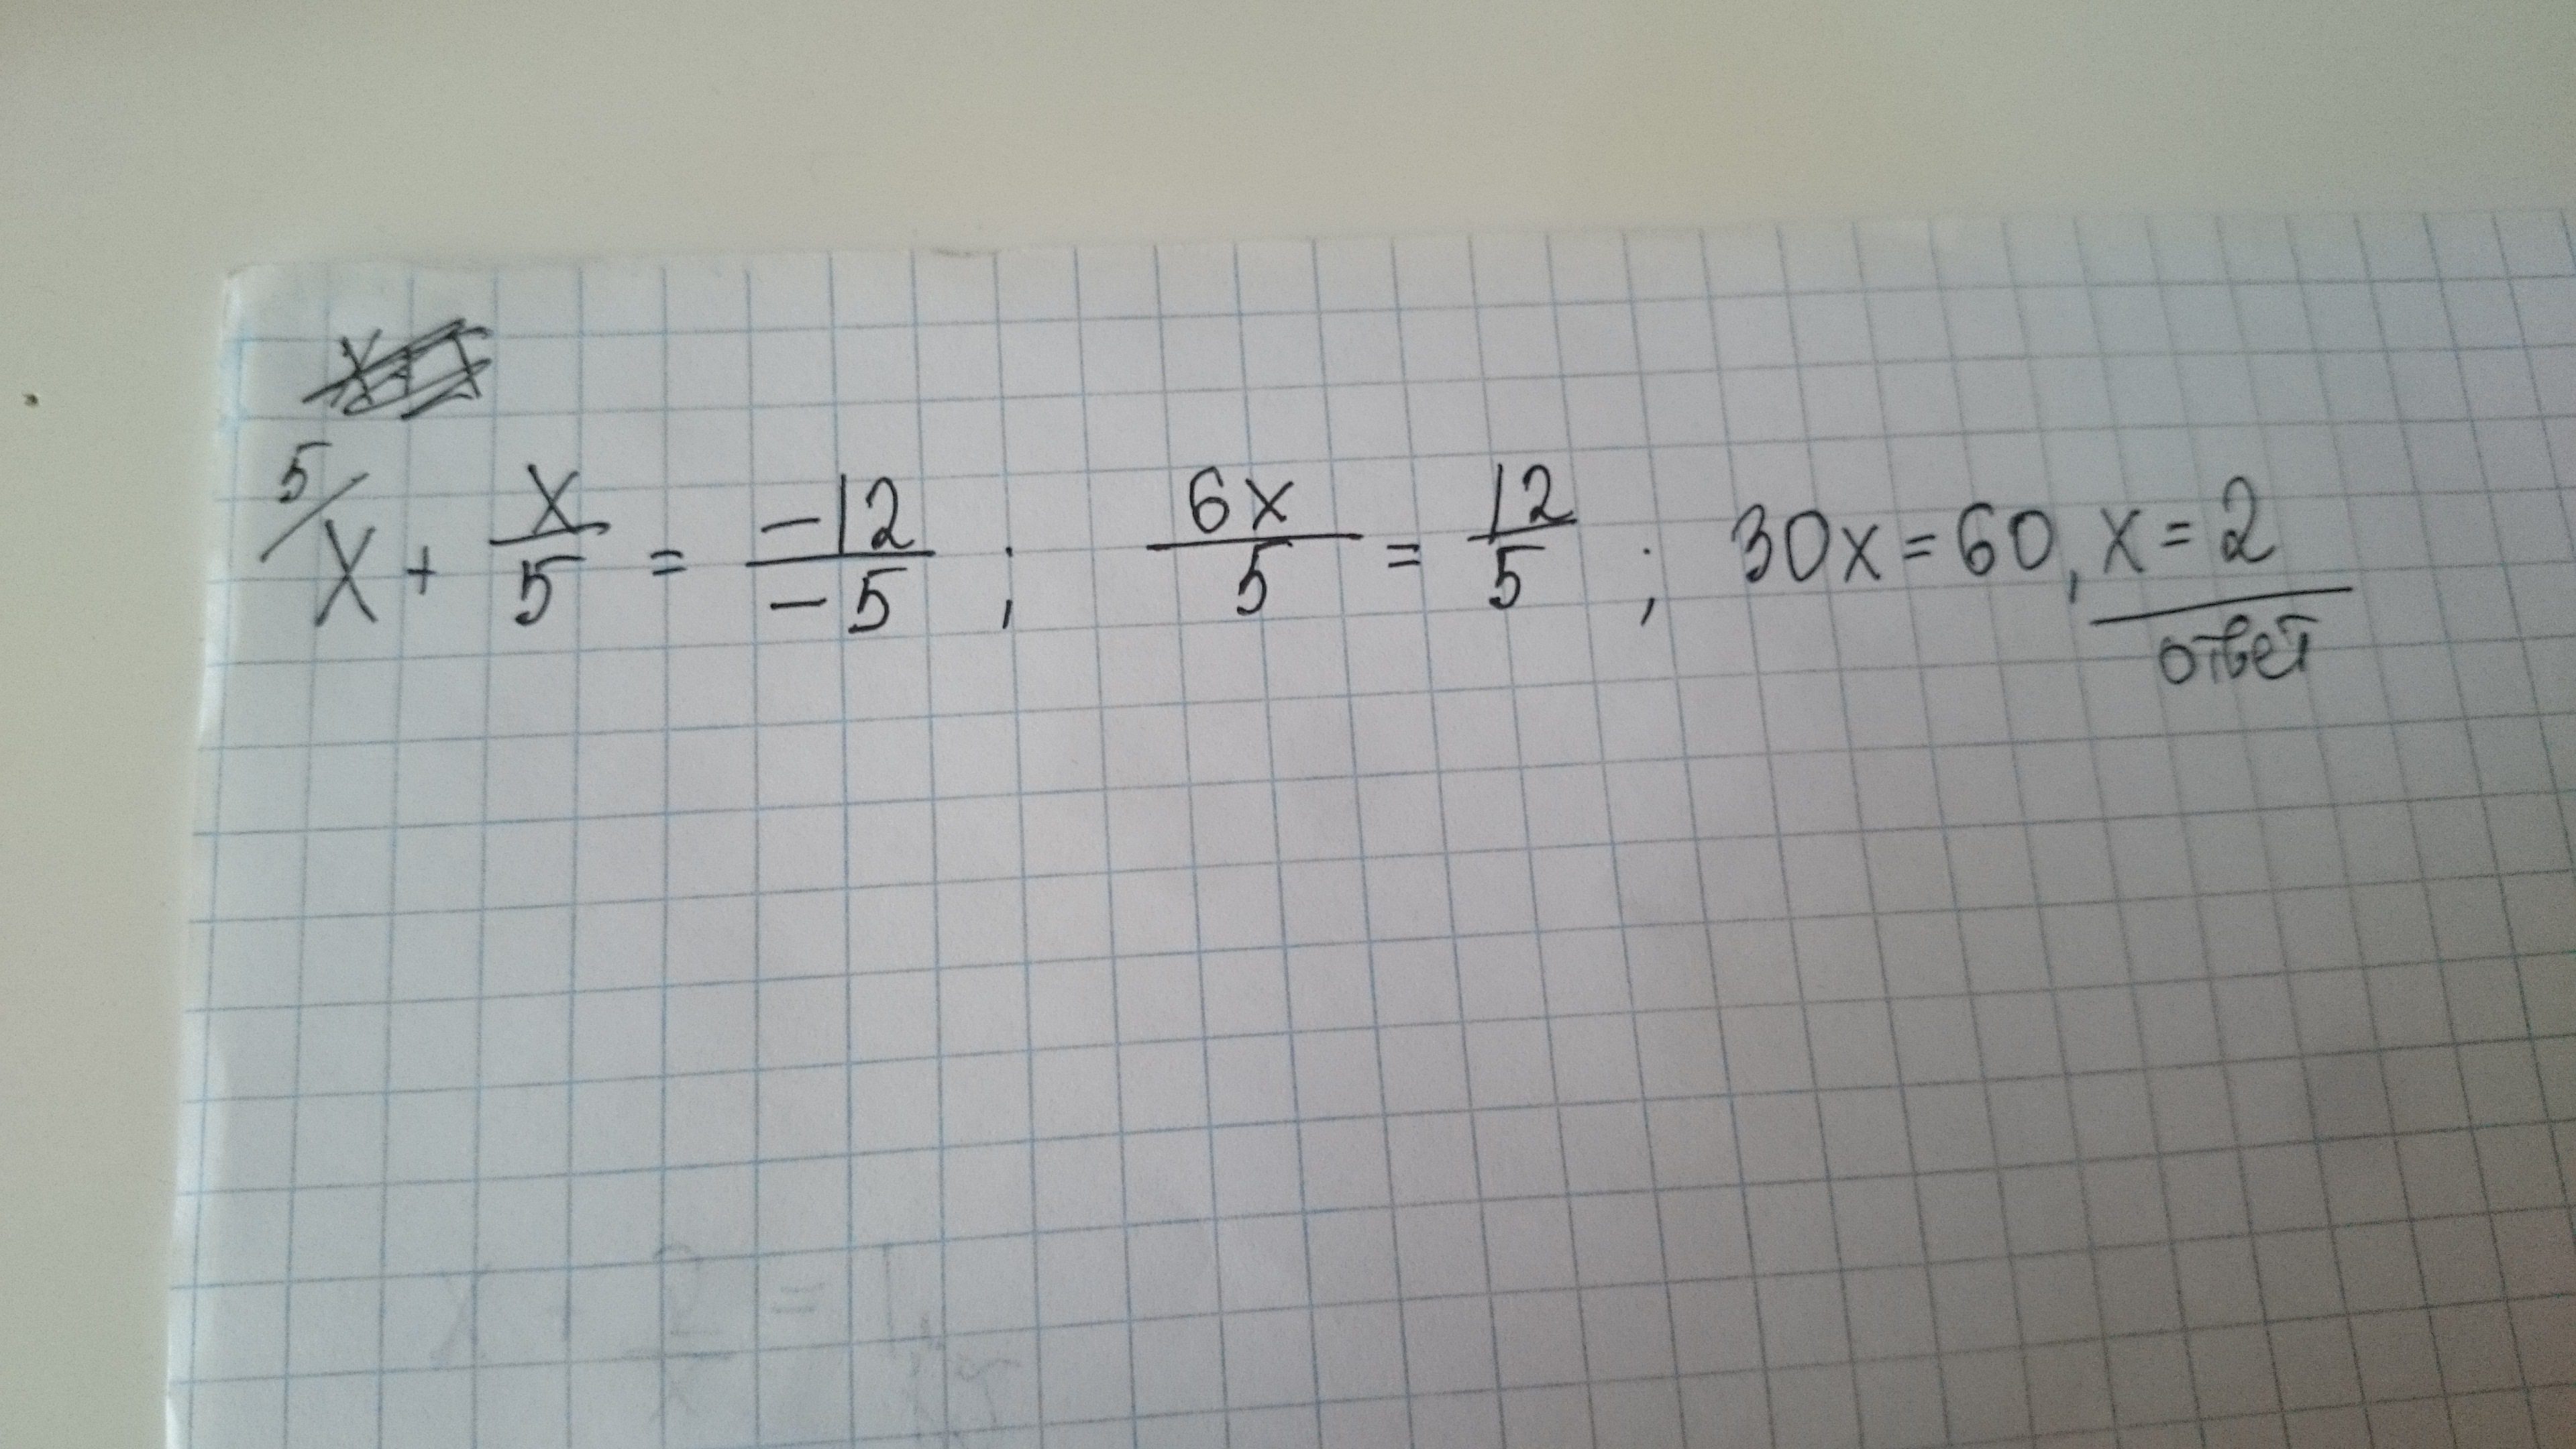 5/x + x/5 = -12/-5 ; 6x/5 = 12/5 ; 30x = 60, x = 2
ответ